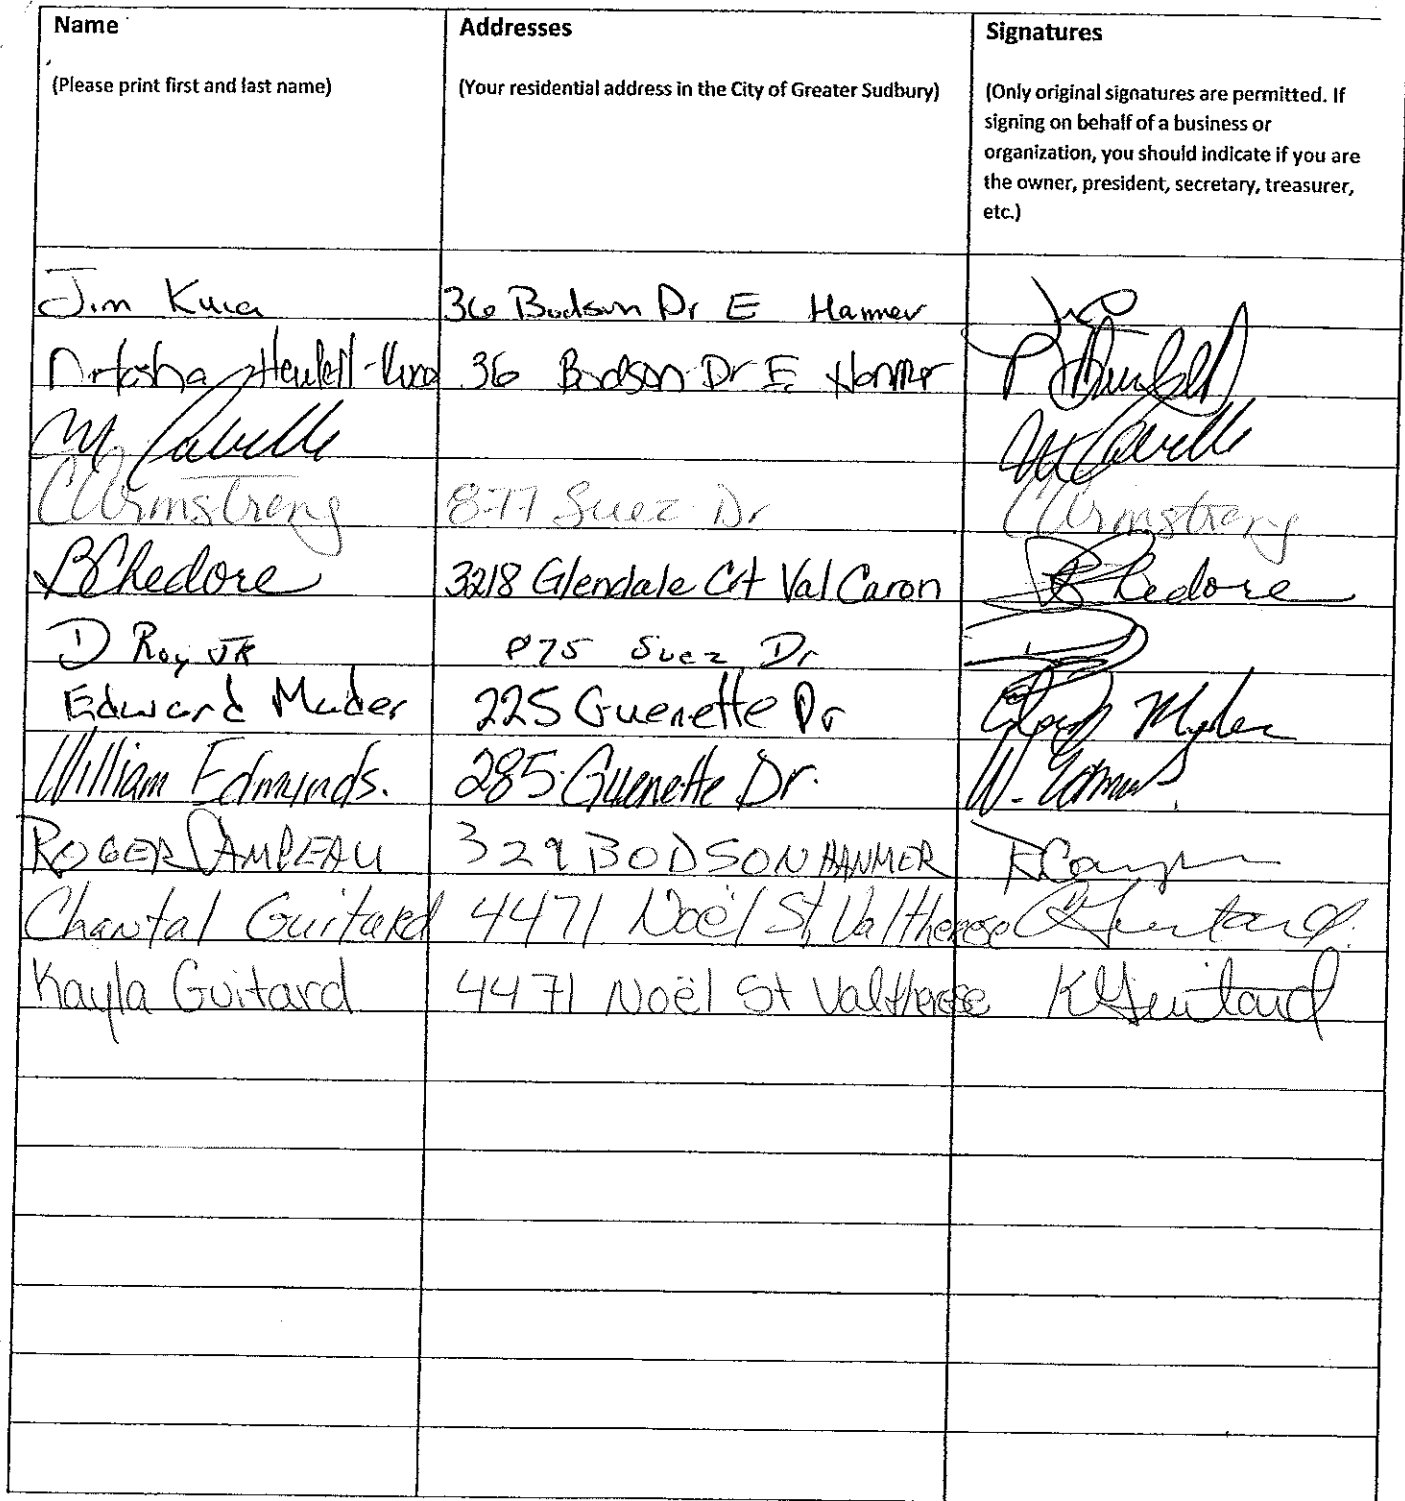 Name Addresses Signatures
(Please print first and last name) (Your residential address in the City of Greater Sudbury) (Only original signatures are permitted. If
signing on behalf of a business or
organization, you should indicate if you are
the owner, president, secretary, treasurer,
etc.)
Jim 36 Bodson Dr E Hanmer
Natasha 36 Bodson Dr E. Hanmer
M
C Armstrong 877 Suez Dr C Armstrong
B Chedore 3218 Glendale Crt Val Caron B Chedore
D Roy JR 875 Suez Dr
Edward Mader 225 Guenette Dr Mader
William Edmunds. 285 Guenette Dr. W.
ROGER CAMPEAU 329 BODSON HANMER R
Chantal Guitard 4471 Noël St, Val therese C Guitard
Kayla Guitard 4471 Noël St Val therese K Guitard